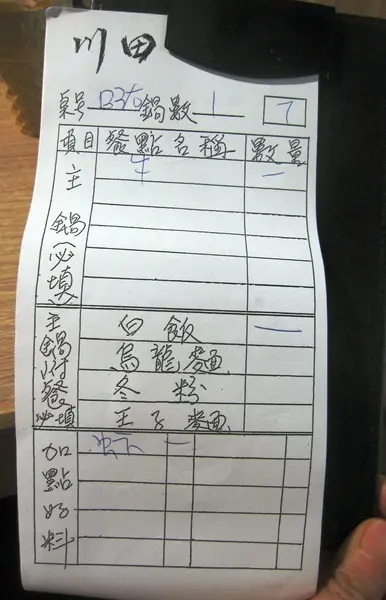 川田
桌號 鍋數 1 7
項目 餐點名稱 數量
主鍋(必填) 牛 一
主鍋附餐必填 白飯 一
烏龍麵
冬粉
王子麵
加點好料 一